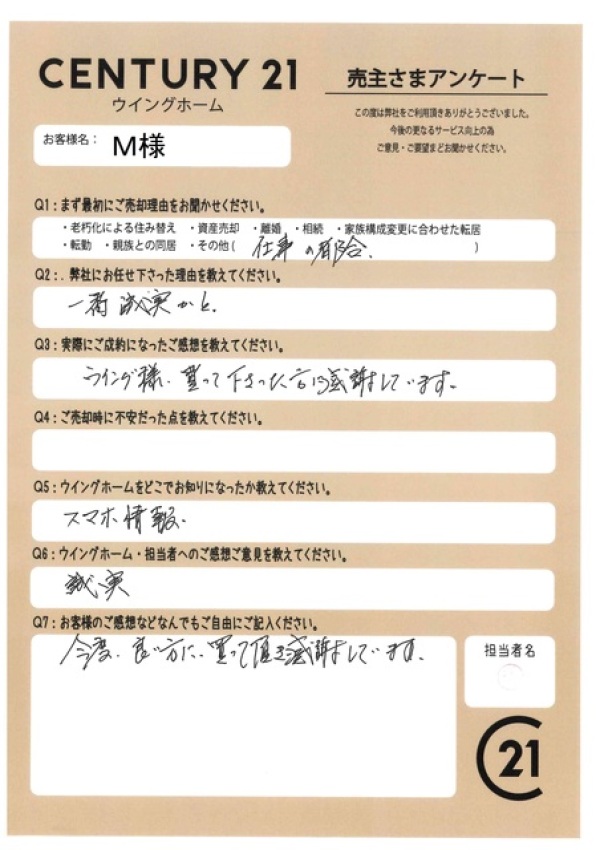 CENTURY 21
ウイングホーム
売主さまアンケート
この度は弊社をご利用頂きありがとうございました。
今後の更なるサービス向上の為
ご意見・ご要望まどお聞かせください。
お客様名： M様
Q1：まず最初にご売却理由をお聞かせください。
・老朽化による住み替え ・資産売却 ・離婚 ・相続 ・家族構成変更に合わせた転居
・転勤 ・親族との同居 ・その他( 仕事の都合. )
Q2：. 弊社にお任せ下さった理由を教えてください。
一番誠実かと.
Q3：実際にご成約になったご感想を教えてください。
ウイング様、買って下さった方に感謝しています。
Q4：ご売却時に不安だった点を教えてください。
Q5：ウイングホームをどこでお知りになったか教えてください。
スマホ情報.
Q6：ウイングホーム・担当者へのご感想ご意見を教えてください。
誠実
Q7：お客様のご感想などなんでもご自由にご記入ください。
今度、良い方に、買って頂き感謝しています。
担当者名
C21